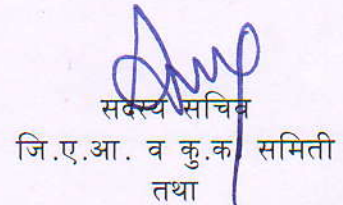 सदस्य सचिव
जि.ए.आ. व कु.क. समिती
तथा